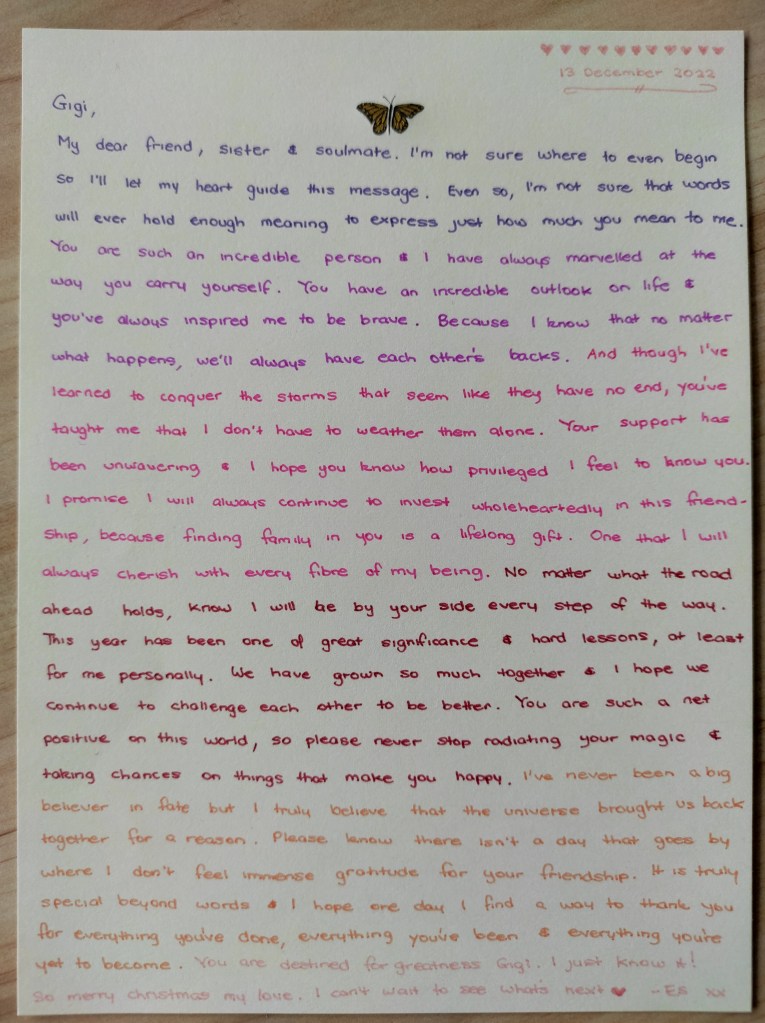 13 December 2022
Gigi,
My dear friend, sister & soulmate. I'm not sure where to even begin
so I'll let my heart guide this message. Even so, I'm not sure that words
will ever hold enough meaning to express just how much you mean to me.
You are such an incredible person & I have always marvelled at the
way you carry yourself. You have an incredible outlook on life &
you've always inspired me to be brave. Because I know that no matter
what happens, we'll always have each other's backs. And though I've
learned to conquer the storms that seem like they have no end, you've
taught me that I don't have to weather them alone. Your support has
been unwavering & I hope you know how privileged I feel to know you.
I promise I will always continue to invest wholeheartedly in this friend-
ship, because finding family in you is a lifelong gift. One that I will
always cherish with every fibre of my being. No matter what the road
ahead holds, know I will be by your side every step of the way.
This year has been one of great significance & hard lessons, at least
for me personally. We have grown so much together & I hope we
continue to challenge each other to be better. You are such a net
positive on this world, so please never stop radiating your magic &
taking chances on things that make you happy. I've never been a big
believer in fate but I truly believe that the universe brought us back
together for a reason. Please know there isn't a day that goes by
where I don't feel immense gratitude for your friendship. It is truly
special beyond words & I hope one day I find a way to thank you
for everything you've done, everything you've been & everything you're
yet to become. You are destined for greatness Gigi. I just know it!
So merry christmas my love. I can't wait to see what's next ♥ -Es xx